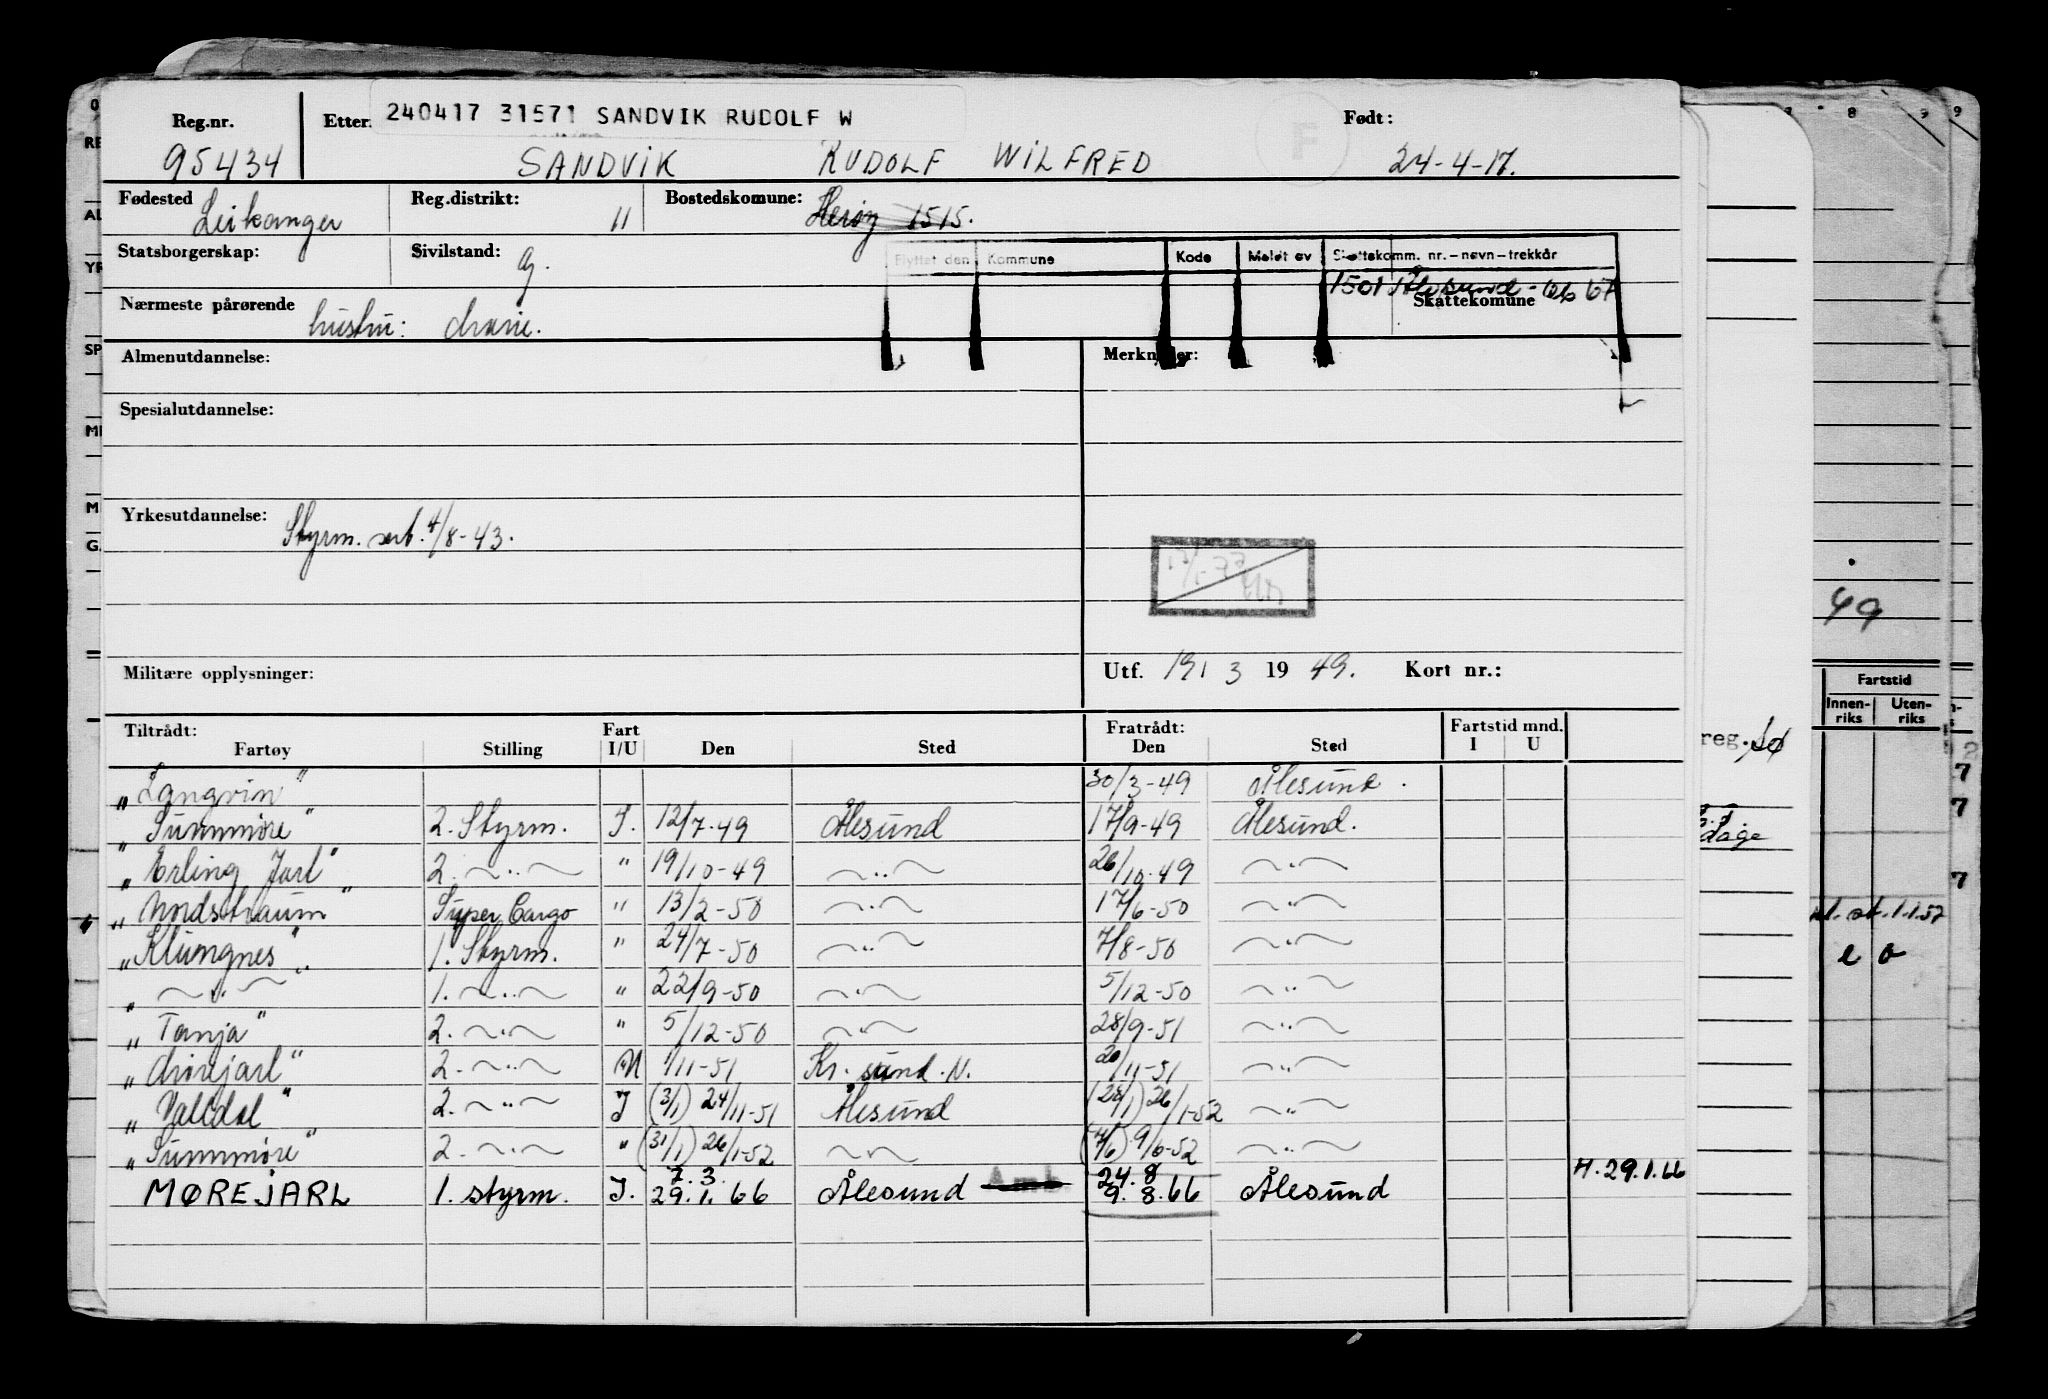 240417 31571 SANDVIK RUDOLF W
Reg.nr. Etter. Født:
95434 SANDVIK RUDOLF WILFRED 24-4-17.
Fødested Leikanger Reg.distrikt: 11 Bostedskomune: Herøy 1515.
Statsborgerskap: Sivilstand: g.
Flyttet den Kommune Kode Meldt av Skattekomm. nr. – navn – trekkår
1501 Ålesund - 66 67
Skattekomune
Nærmeste pårørende hustru: Marie.
Almenutdannelse: Merknader:
Spesialutdannelse:
Yrkesutdannelse: Styrm. sert. 4/8-43.
Militære opplysninger: Utf. 19/ 3 19 49. Kort nr.:
Tiltrådt: Fart Fratrådt: Fartstid mnd.
Fartøy Stilling I/U Den Sted Den Sted I U
"Langvin" 30/3-49 Ålesund.
"Sunnmøre" 2. Styrm. I. 12/7-49 Ålesund 17/9-49 Ålesund.
"Erling Jarl" 2. ~"~ " 19/10-49 ~"~ 26/10-49 ~"~
"Nordstraum" Super Cargo " 13/2-50 ~"~ 17/6-50 ~"~
"Klungnes" 1. Styrm. " 24/7-50 ~"~ 7/8-50 ~"~
" ~"~ 1. ~"~ " 22/9-50 ~"~ 5/12-50 ~"~
"Tanja" 2. ~"~ " 5/12-50 ~"~ 28/9-51 ~"~
"Mørejarl" 2. ~"~ U 1/11-51 Kr. sund. N. 20/11-51 ~"~
"Valldal" 2. ~"~ I (3/1) 24/11-51 Ålesund (28/1) 26/1-52 ~"~
"Sunnmøre" 2. ~"~ " (31/1) 26/1-52 ~"~ (7/6) 9/6-52 ~"~
7. 3. 24. 8
MØREJARL 1. styrm. I. 29. 1. 66 Ålesund Amb 9. 8. 66 Ålesund H. 29.1.66
8 9 9
49
Fartstid
Innen-riks Uten-riks
reg.
dage
7
7
7
1.1.52